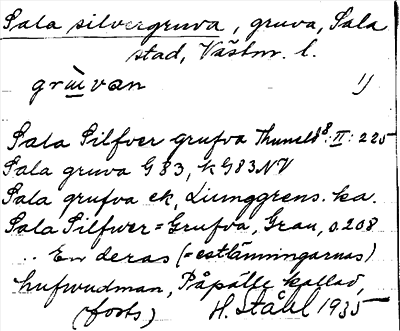 Sala silvergruva, gruva, Sala
stad, Västm. l.
grùvan 1)
Sala Silfver grufva Thuneld 8: II: 225
Sala gruva G83, k G83NV
Sala grufva ek, Ljunggrens ka.
Sala Silfwer=Grufva, Grau, s. 208
.. En deras (=estlänningarnas)
hufwudman, Påpälle kallad,
(forts) H. Ståhl 1935